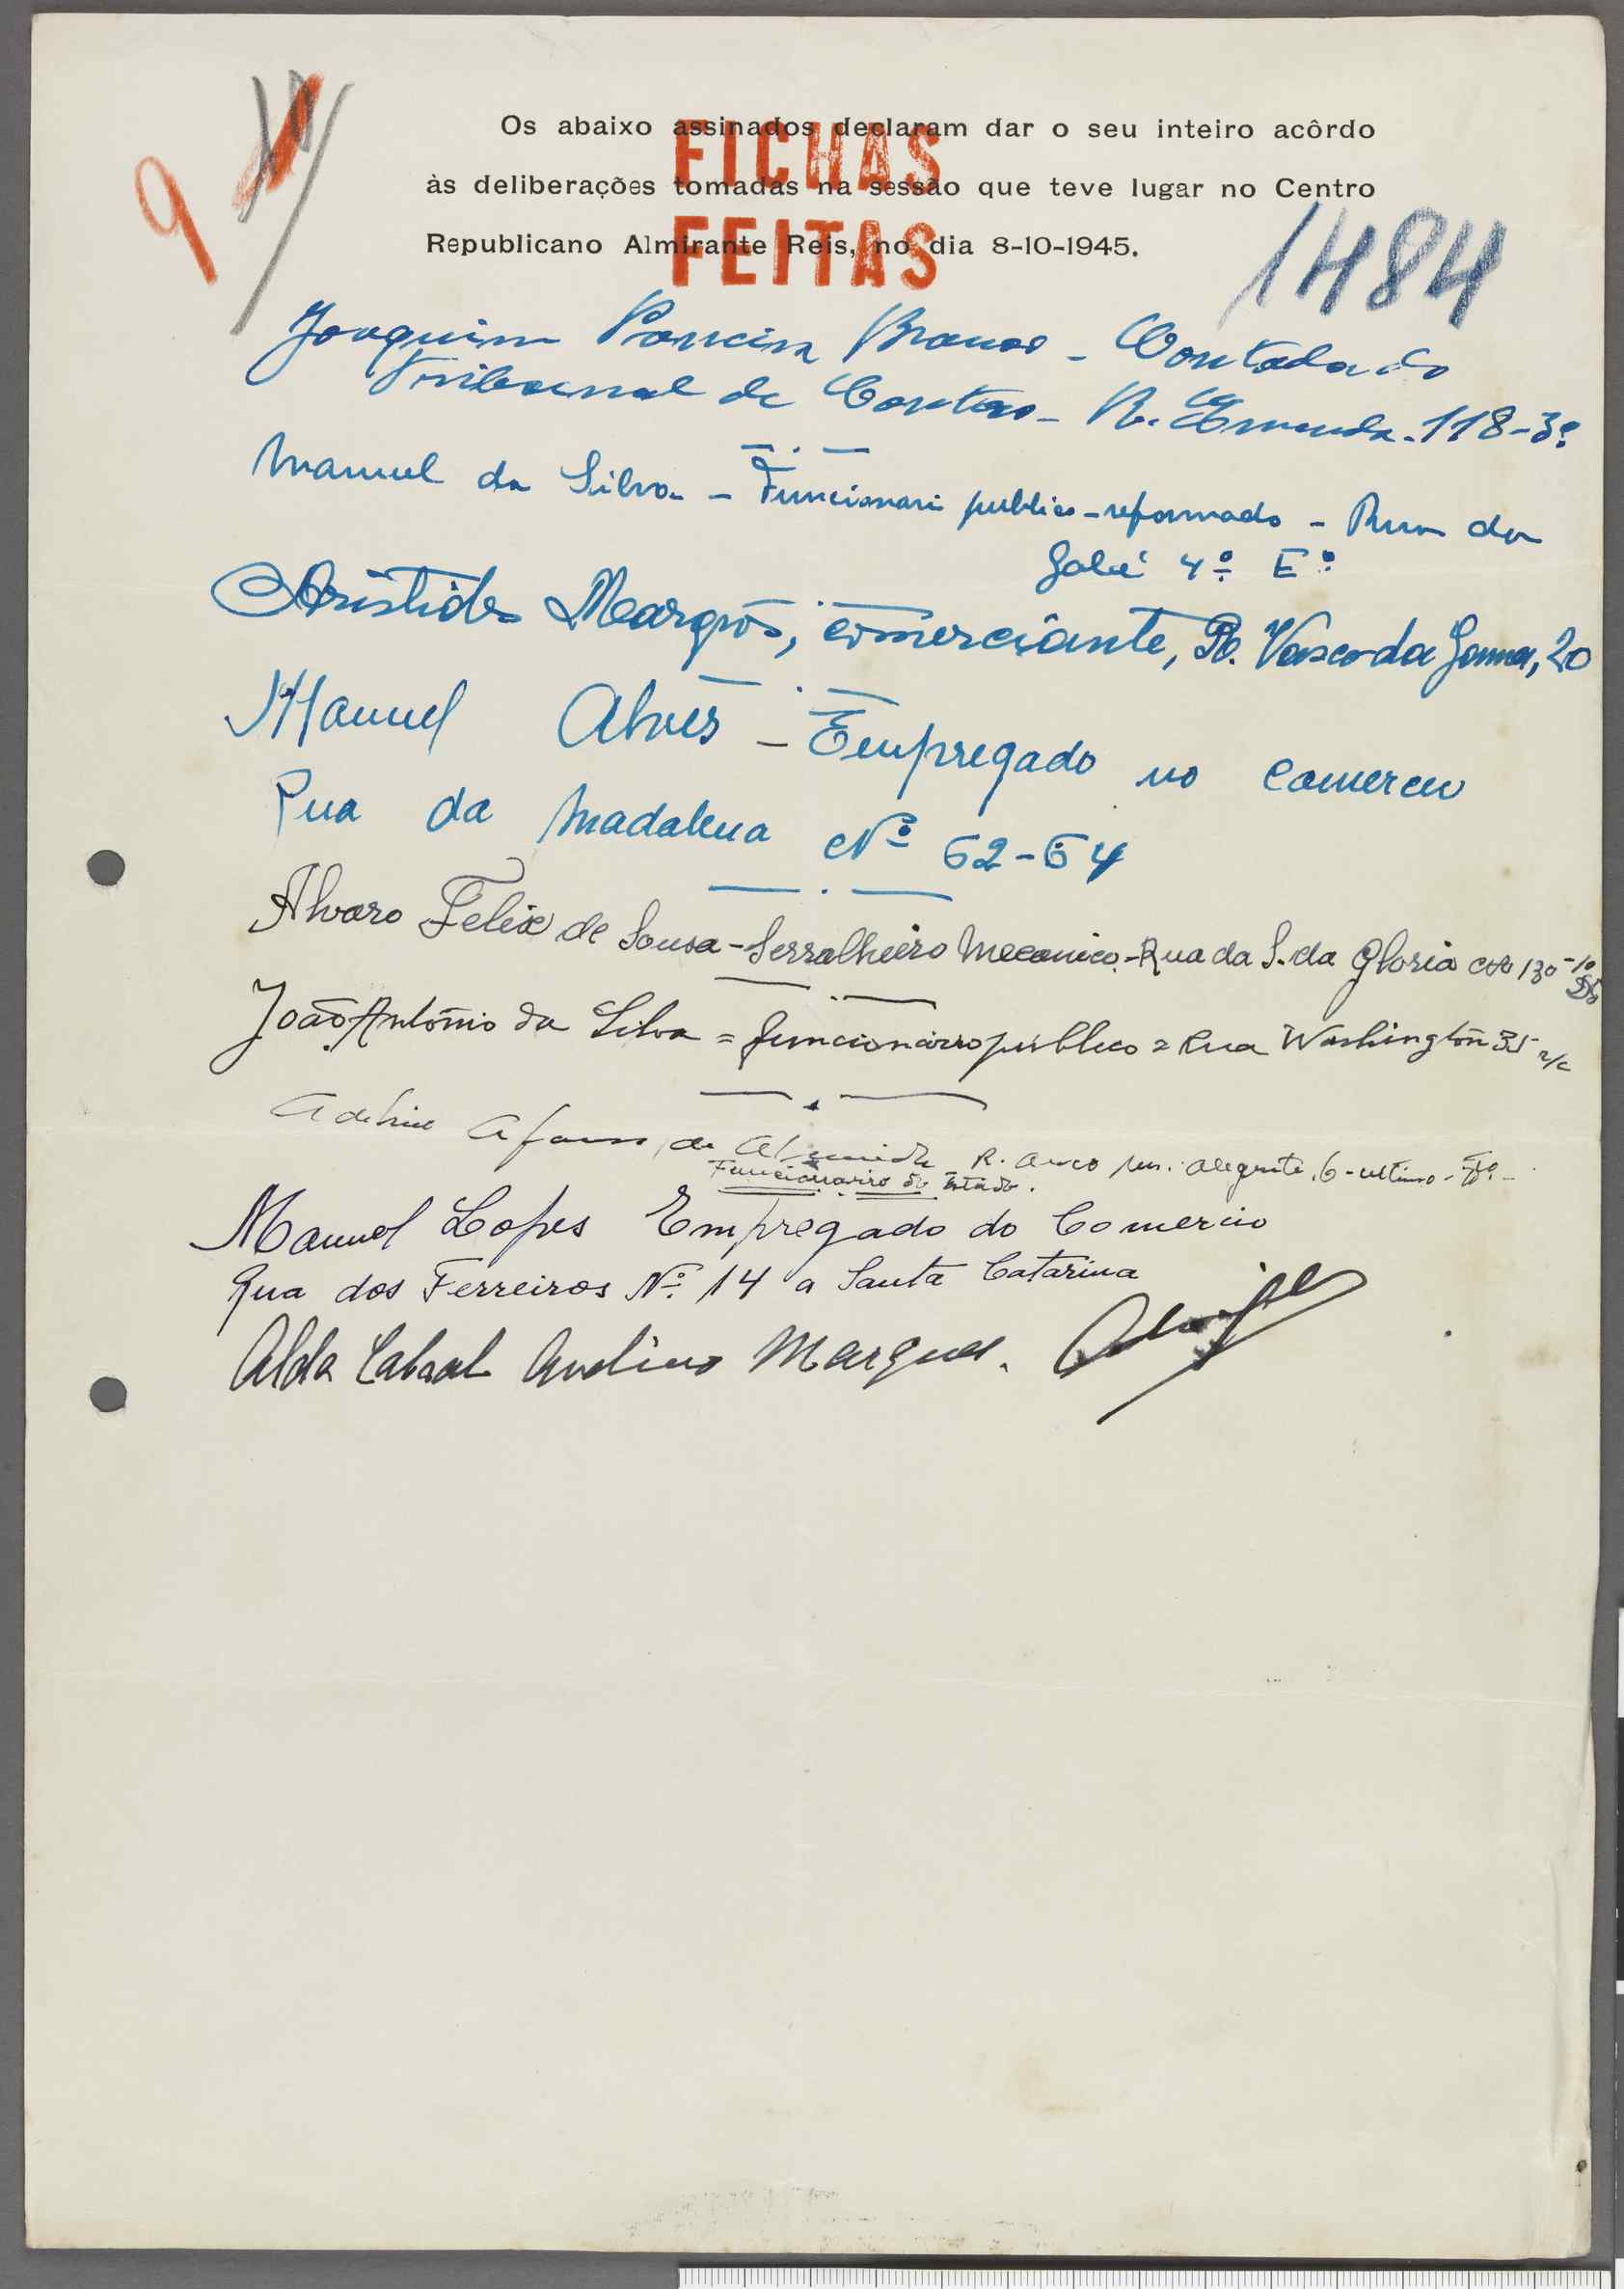 9
Os abaixo assinados declaram dar o seu inteiro acôrdo
FICHAS
às deliberações tomadas na sessão que teve lugar no Centro
Republicano Almirante Reis, no dia 8-10-1945.
FEITAS
1484
Joaquim Parreira - Contador do
Tribunal de Contas - R. Emenda - 118-3º
Manuel da Silva - Funcionario publico - reformado - Rua da
Galé 4º Eº
Aristides Marques, comerciante, R. Vasco da Gama, 20
Manuel Alves - Empregado no Comercio
Rua da Madalena Nº 62-64
Alvaro Felix de Sousa - Serralheiro Mecanico - Rua da S. da Gloria 130-1º
João António da Silva = funcionário público = Rua Washington 35 r/c
Afonso de Almeida R. Arco Alegrete, 6 - ultimo -
Funcionario do Estado.
Manuel Lopes Empregado do Comercio
Rua dos Ferreiros Nº 14 a Santa Catarina
Alda Cabral Avelino Marques.